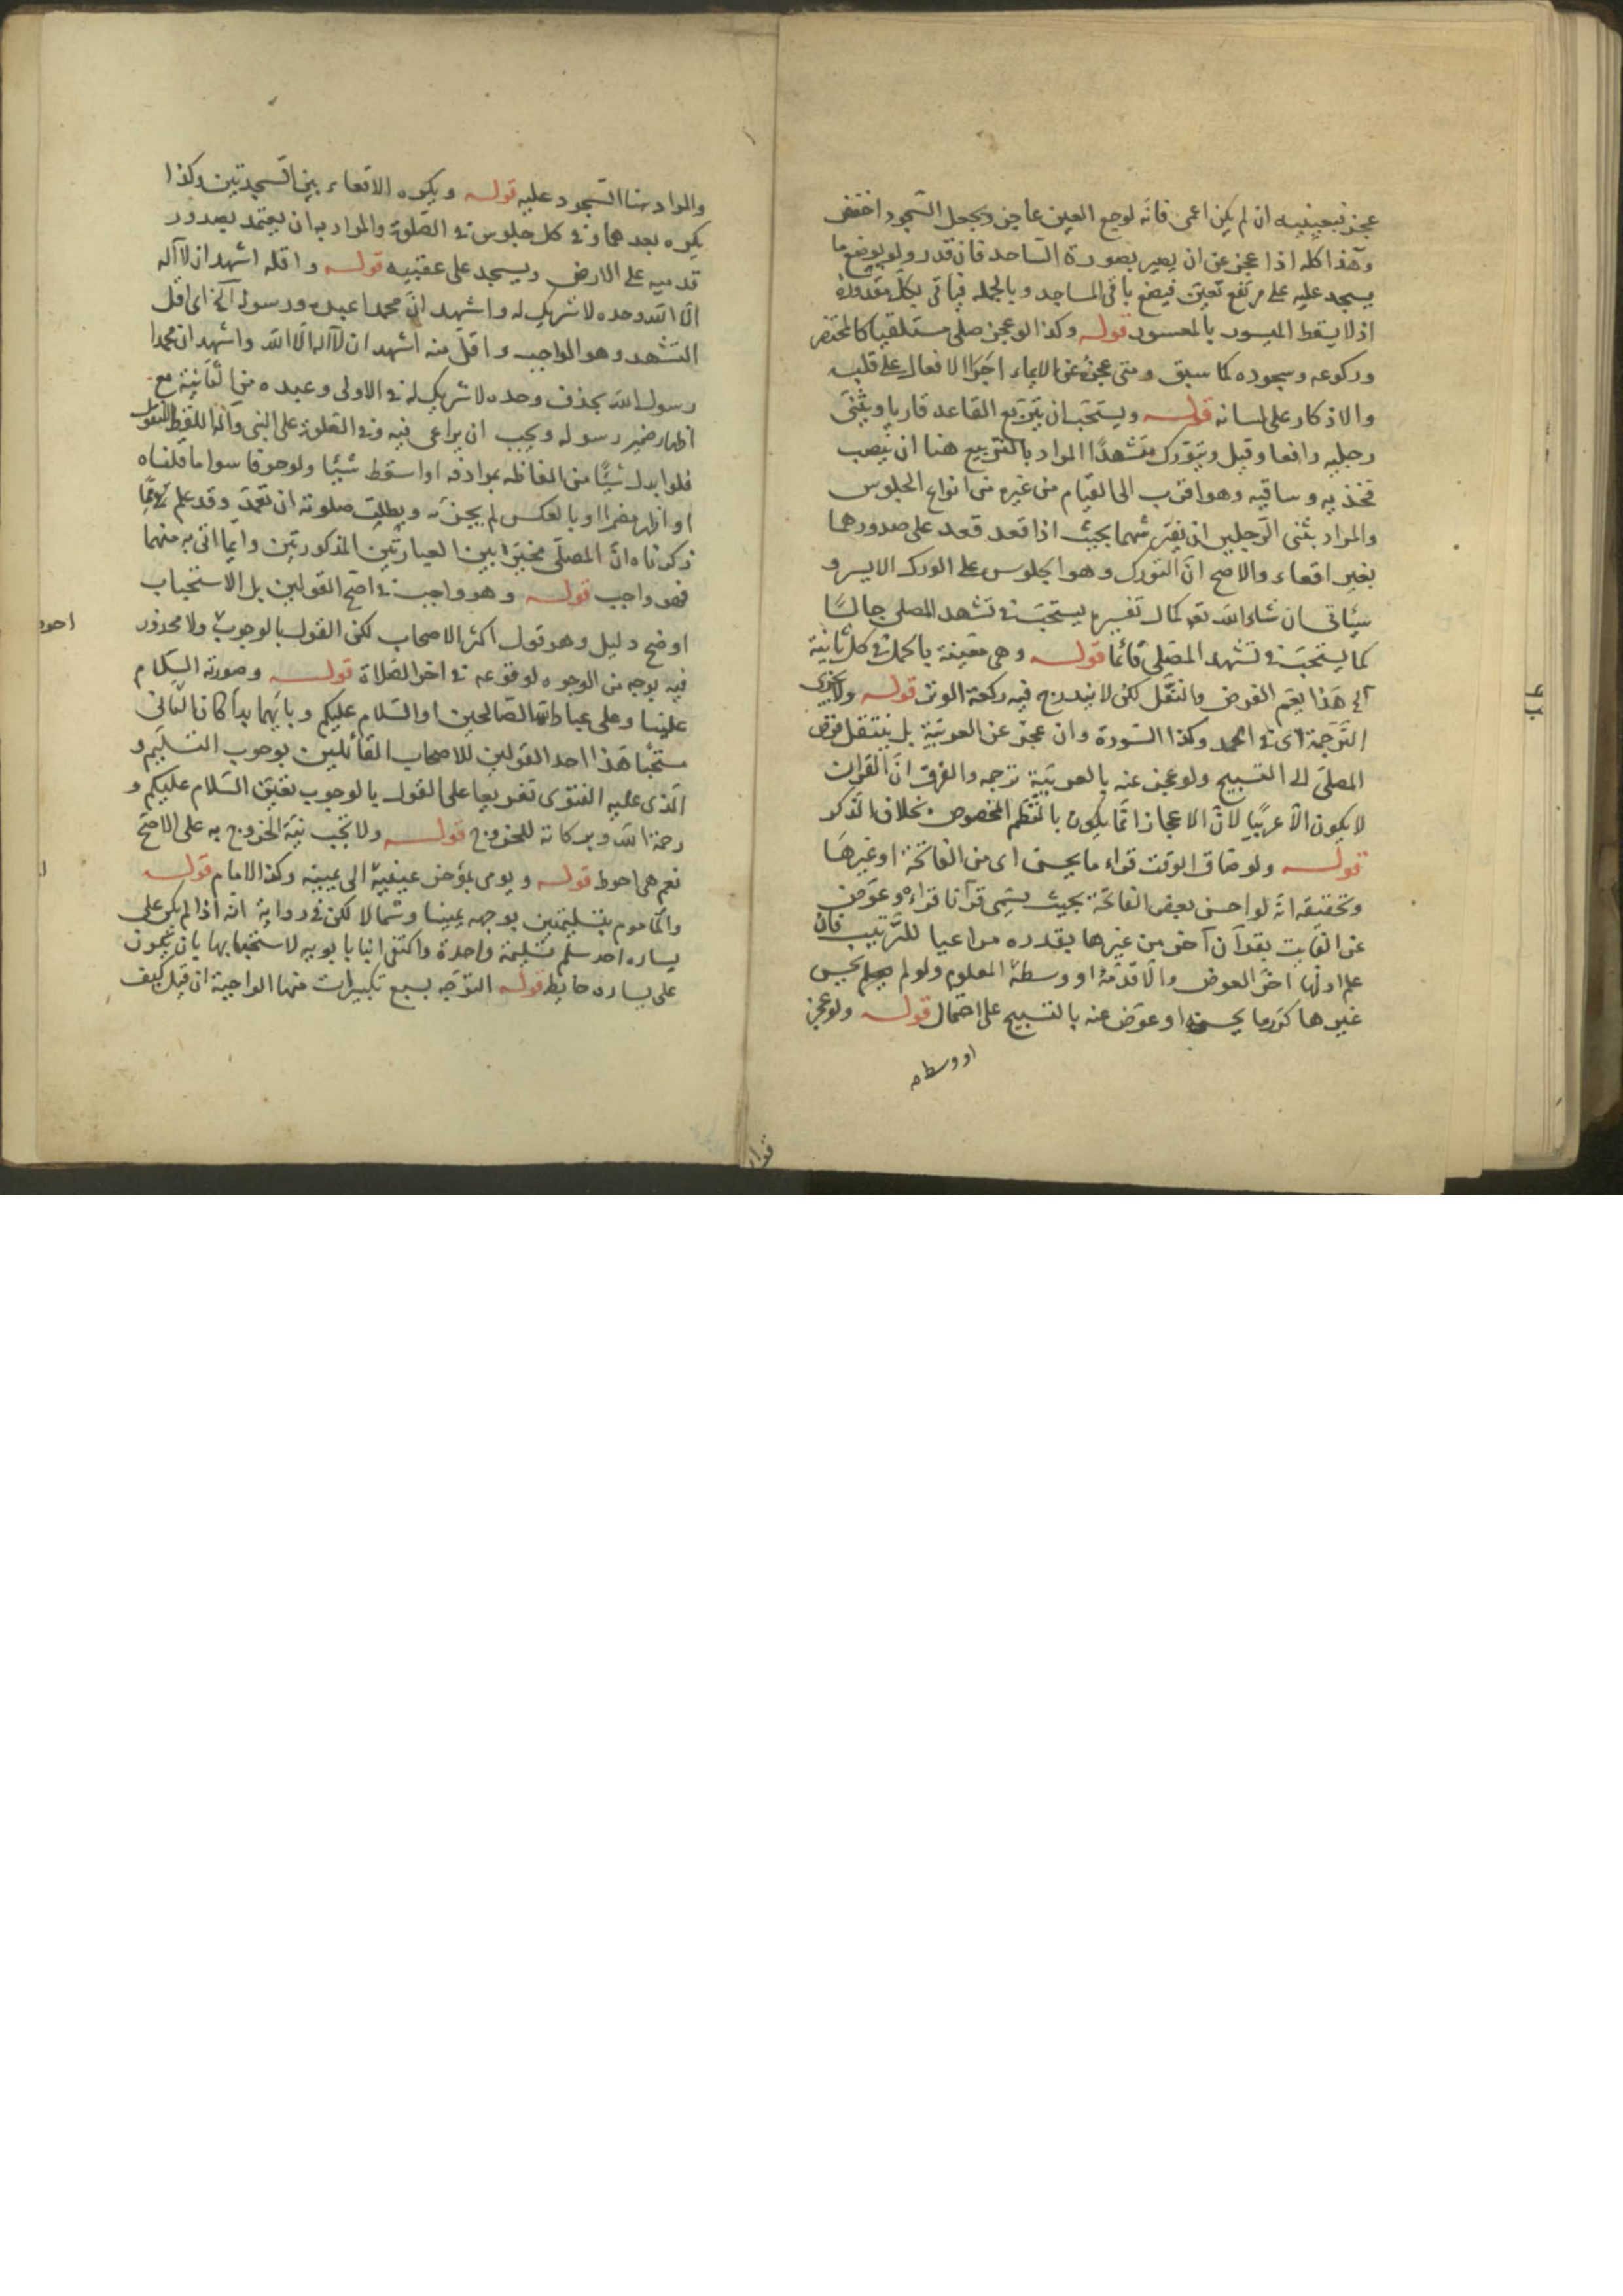 عجز فبعينيه ان لم يكن اعمى فانه لوجع العين عاجز ويجعل السجود اخفض
وهذا كله اذا عجز عن ان يصير بصورة الساجد فان قدر ولو بوضع ما
يسجد عليه على مرتفع تعين فيضع باقى المساجد وبالجمله فياتى بكل مقدوره
اذ لا يسقط الميسور بالمعسور قوله وكذا لو عجز صلى مستلقيا كالمحتضر
وركوعه وسجوده كما سبق ومتى عجز عن الايماء اجرا الافعال على قلبه
والاذكار على لسانه قوله ويستحب ان يتربع القاعد قاريا ويثنى
رجليه رافعا وقيل ويتورك متشهدا المراد بالتربيع هنا ان ينصب
فخذيه وساقيه وهو اقرب الى القيام من غيره من انواع الجلوس
والمراد بثنى الرجلين ان يفترشهما بحيث اذا قعد قعد على صدورهما
بغير اقعاء والاصح ان التورك وهو الجلوس على الورك الايسر و
سيأتى ان شاء الله تع كمال تفسيره يستحب فى تشهد المصلى جالسا
كما يستحب فى تشهد المصلى قائما قوله وهى معينة بالحمد فى كل ثانية
آلخ هذا يعم الفرض والنفل لكن لا يندرج فيه ركعة الوتر قوله ولا يجزى
الترجمة اى فى الحمد وكذا السورة وان عجز عن العربية بل ينتقل فرض
المصلى الى التسبيح ولو عجز عنه بالعربية ترجمه والفرق ان القران
لا يكون الا عربيا لان الاعجاز انما يكون بالنظم المخصوص بخلاف الذكر
قوله ولو ضاق الوقت قراء ما يحسن اى من الفاتحة او غيرها
وتحقيقه انه لو احسن بعض الفاتحة بحيث يسمى قرآنا قراءه وعوض
عن الفايت بقرآن آخر من غيرها بقدره مراعيا للترتيب فان
علم اولها اخر العوض والا قدمه او وسطه المعلوم ولو لم يحسن
غيرها كرر ما يحسنه او عوض عنه بالتسبيح على احتمال قوله ولو عجز
او وسطه
والمراد هنا السجود عليه قوله ويكره الاقعاء بين السجدتين وكذا
يكره بعدهما وفى كل جلوس فى الصلوة والمراد به ان يعتمد بصدور
قدميه على الارض ويسجد على عقبيه قوله واقله اشهد ان لا آله
الا الله وحده لا شريك له واشهد ان محمدا عبده ورسوله آلخ اى اقل
التشهد وهو الواجب واقل منه اشهد ان لا آله الا الله واشهد ان محمدا
رسول الله بحذف وحده لا شريك له فى الاولى وعبده من الثانية مع
اظهار ضمير رسوله ويجب ان يراعى فيه وفى الصلوة على النبى وآله اللفظ المنقول
فلو ابدل شيئا من الفاظه بمرادفه او اسقط شيئا ولو حرفا سوا ما قلناه
او اظهر مضمرا او بالعكس لم يجزه وبطلت صلوته ان تعمد وقد علم مما
ذكرناه ان المصلى مخير بين العبارتين المذكورتين وايما اتى به منهما
فهو واجب قوله وهو واجب فى اصح القولين بل الاستحباب
اوضح دليل وهو قول اكثر الاصحاب لكن القول بالوجوب ولا محذور
احوط
فيه بوجه من الوجوه لوقوعه فى اخر الصلاة قوله وصورته السلام
علينا وعلى عباد الله الصالحين او السلام عليكم وبايهما بدأ كان الثانى
مستحبا هذا احد القولين للاصحاب القائلين بوجوب التسليم و
الذى عليه الفتوى تفريعا على القول بالوجوب تعين السلام عليكم و
رحمة الله وبركاته للخروج قوله ولا تجب نية الخروج به على الاصح
نعم هى احوط قوله ويومى بمؤخر عينيه الى يمينه وكذا الامام قوله
والماموم بتسليمتين بوجهه يمينا وشمالا لكن فى رواية انه اذا لم يكن على
يساره احد سلم تسليمة واحدة واكتفى ابنا بابويه لاستحبابها بان يكون
على يساره حايط قوله التوجه بسبع تكبيرات منها الواجبة ان قيل كيف